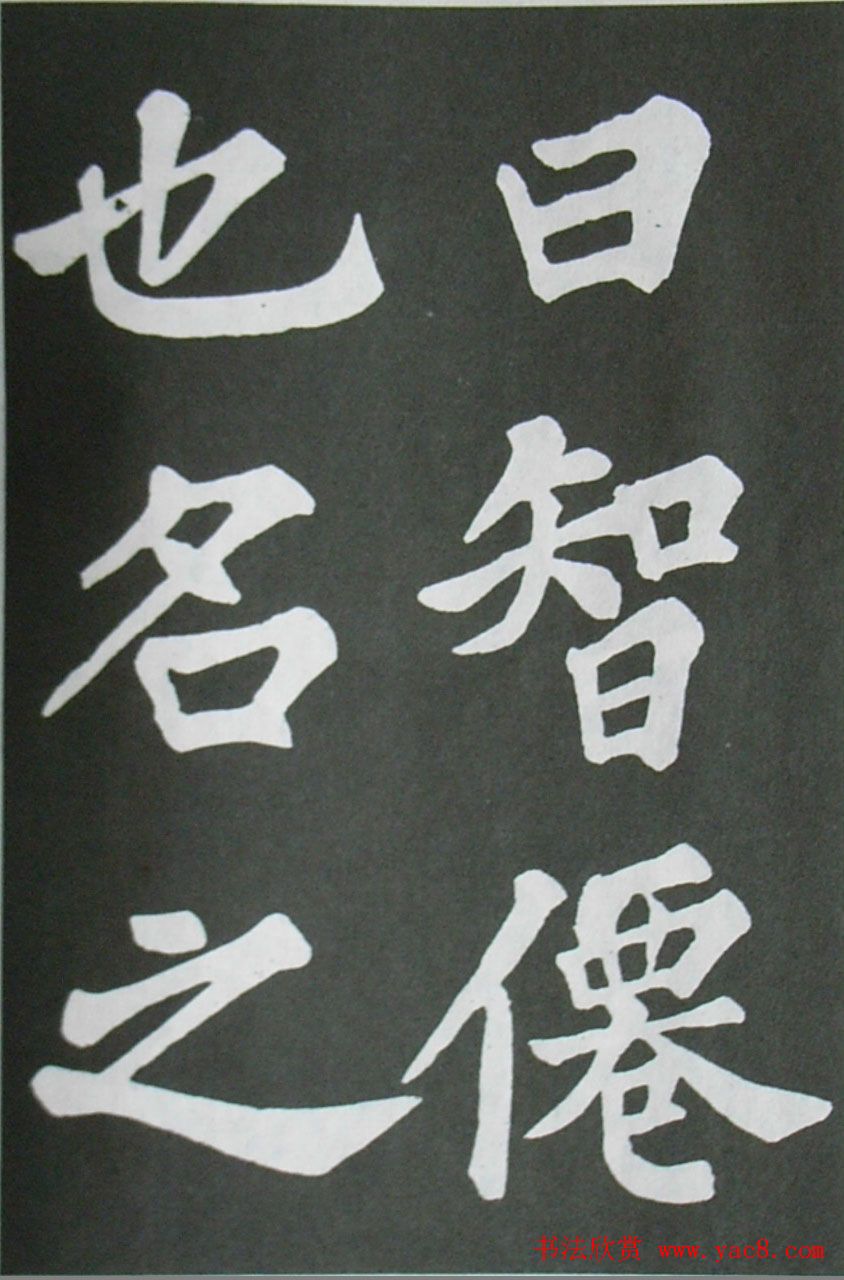 曰智僊
也名之
书法欣赏 www.yac8.com